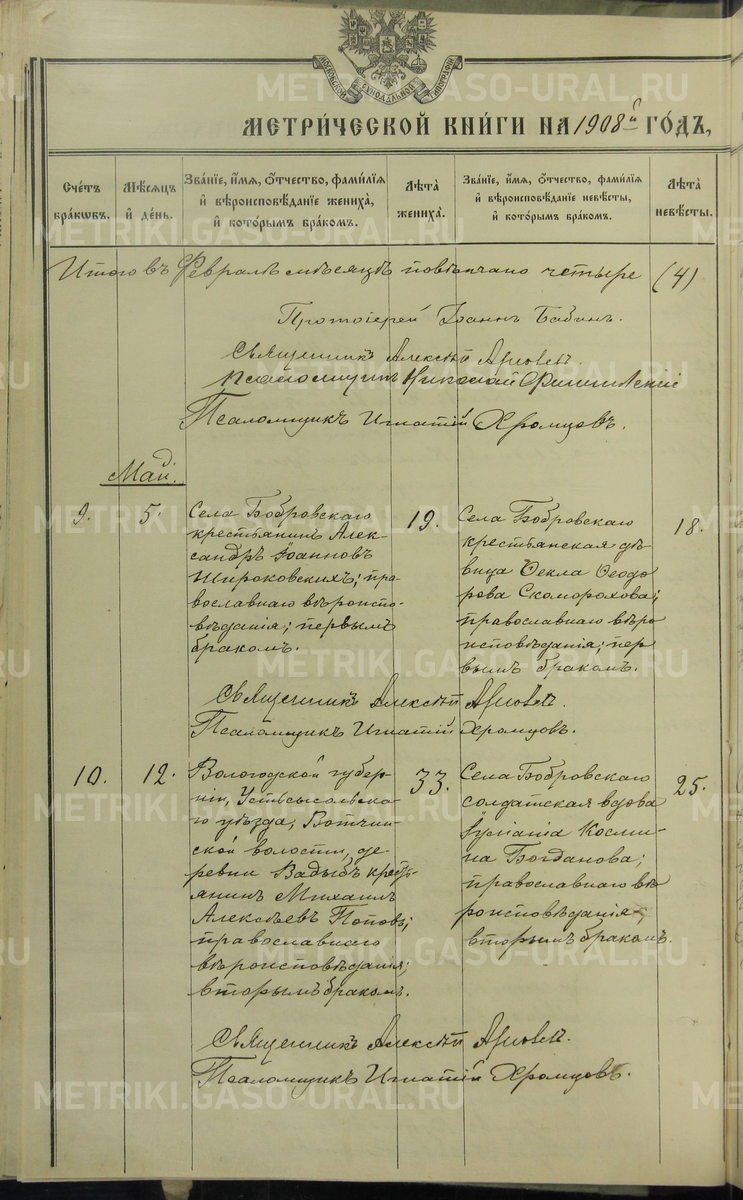 МОСКОВСКОЙ СѴНОДАЛЬНОЙ ТИПОГРАФІИ
МЕТРИ́ЧЕСКОЙ КНИ́ГИ НА 1908й ГО́ДЪ,
Сче́тъ бра́кѡвъ.
Мѣ́сяцъ и҆ де́нь.
Зва́нїе, и҆́мѧ, ѻ҆́тчество, фамилі́ѧ и҆ вѣроисповѣ́данїе жениха̀, и҆ кото́рымъ бра́комъ.
Лѣ́та жениха̀.
Зва́нїе, и҆́мѧ, ѻ҆́тчество, фамилі́ѧ и҆ вѣроисповѣ́данїе невѣ́сты, и҆ кото́рымъ бра́комъ.
Лѣ́та невѣ́сты.
Итого въ Февралѣ мѣсяцѣ повѣнчано четыре (4)
Протоіерей Іоаннъ Бабинъ.
Священникъ Алексѣй
Псаломщикъ Николай
Псаломщикъ Игнатій Хромцовъ.
Май.
9.
5.
Села Бобровскаго
крестьянинъ Алек-
сандръ Іоанновъ
Широковскихъ; пра-
вославнаго вѣроиспо-
вѣданія; первымъ
бракомъ.
19.
Села Бобровскаго
крестьянская дѣ-
вица Ѳекла Ѳеодо
рова Скоморохова;
православнаго вѣро
исповѣданія; пер
вымъ бракомъ.
18.
Священникъ Алексѣй
Псаломщикъ Игнатій Хромцовъ.
10.
12.
Вологодской губер-
ніи, Устьсысольска-
го уѣзда, Вотчин-
ской волости, де-
ревни Вадыбъ кресть-
янинъ Михаилъ
Алексѣевъ Поповъ;
православнаго
вѣроисповѣданія;
вторымъ бракомъ.
33.
Села Бобровскаго
солдатская вдова
Іуліанія Косми-
на Богданова;
православнаго вѣ
роисповѣданія;
вторымъ бракомъ.
25.
Священникъ Алексѣй
Псаломщикъ Игнатій Хромцовъ.
METRIKI.GASO-URAL.RU